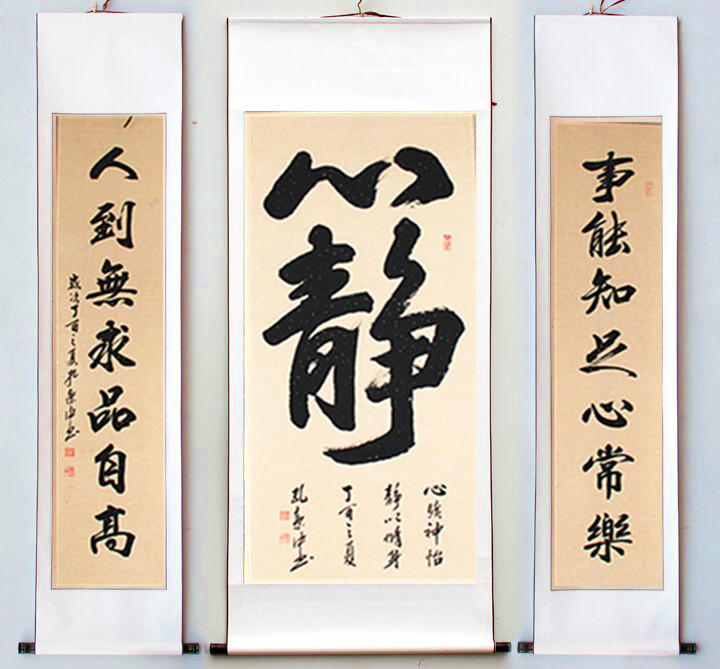 事能知足心常樂
心静
心曠神怡
静以修身
丁酉之夏
孔 书
人到無求品自高
歲次丁酉之夏孔 书